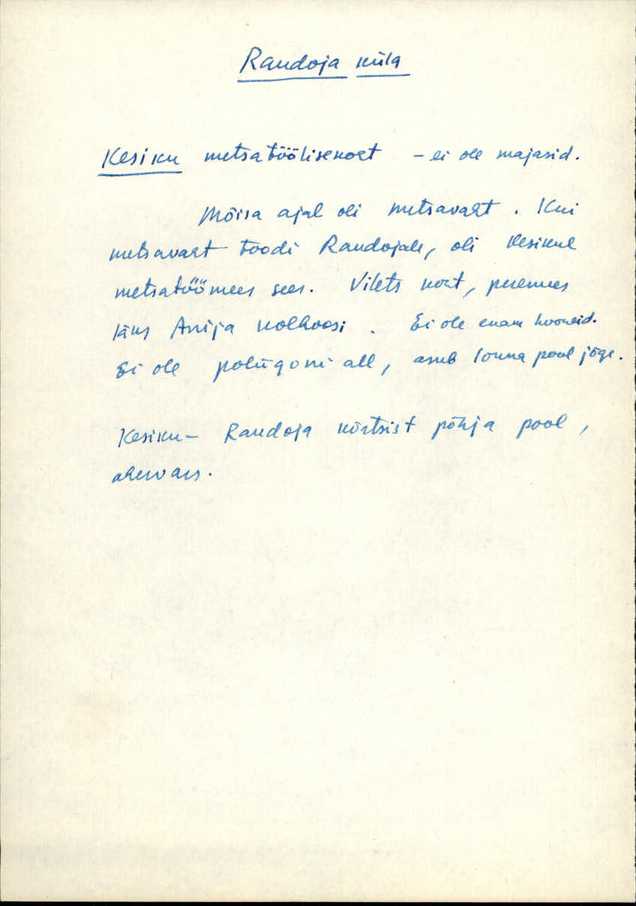 Raudoja küla
Kesiku metsatöölisekoet – ei ole majasid.
Mõisa ajal oli metsavaht. Kui
metsavaht toodi Raudojale, oli Kesikul
metsatöömees sees. Vilets koht, peremees
läks Anija kolhoosi. Ei ole enam hooneid.
Ei ole polügoni all, asub lõuna pool jõge.
Kesiku – Raudoja kõrtsist põhja pool,
ahervars.